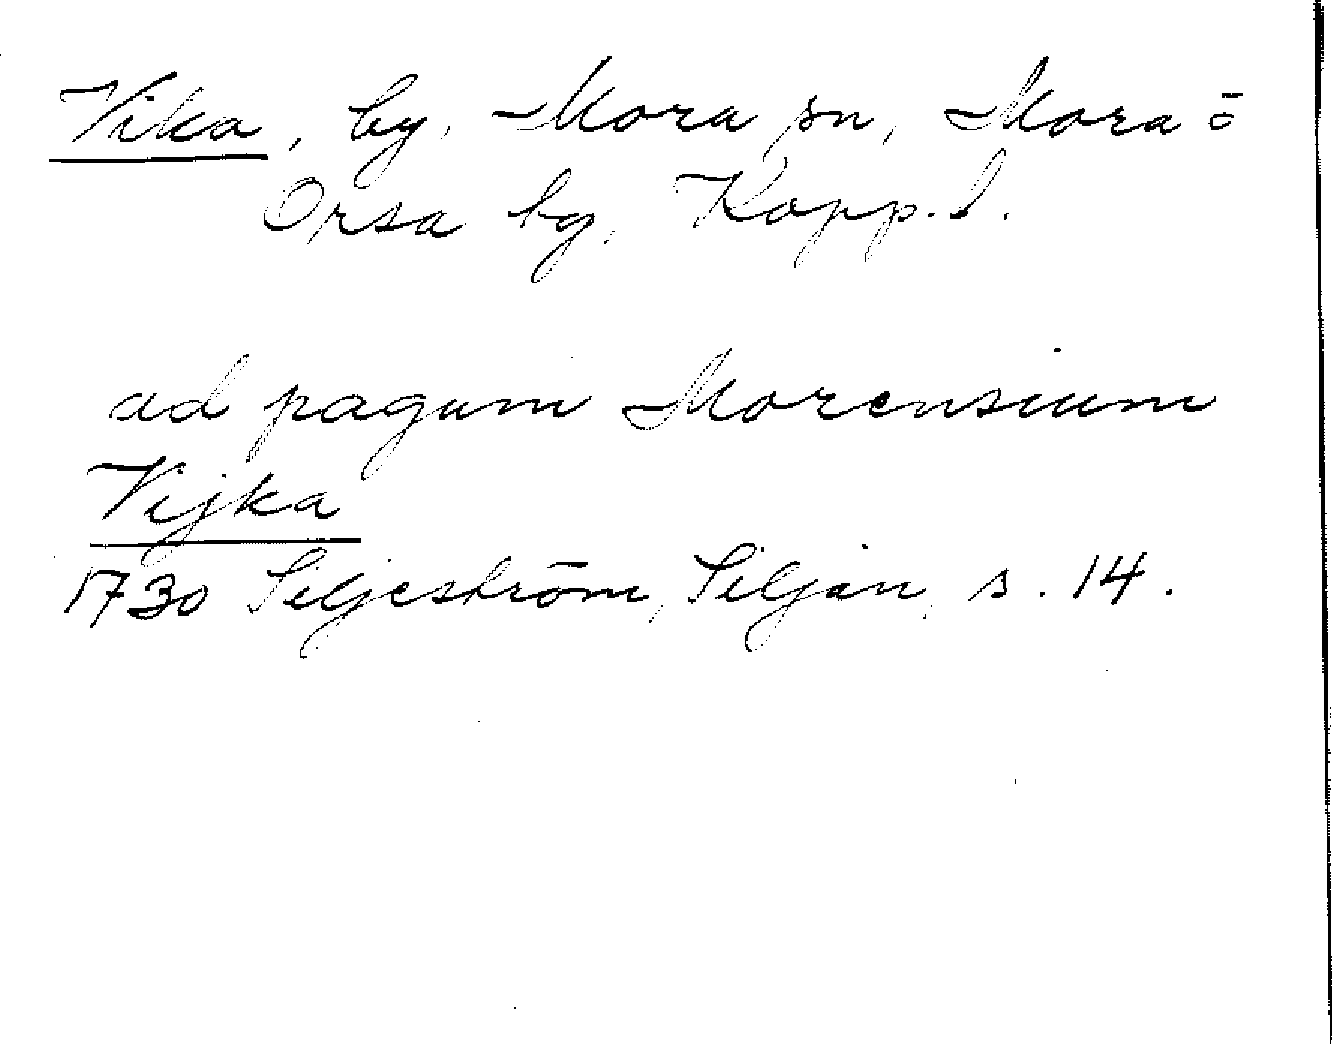 Vika, by, Mora sn, Mora=
Orsa bg, Kopp. l.
ad pagum Morensium
Vijka
1730 Siljeström, Siljan, s. 14.